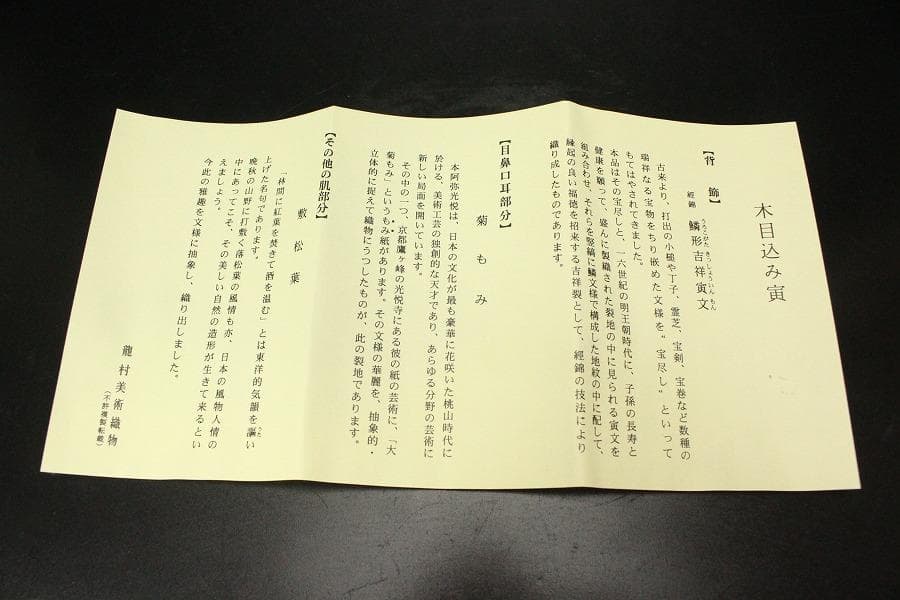 木目込み寅
【背飾】
経錦 鱗形吉祥寅文
うろこがた きっしょういん もん
古来より、打出の小槌や丁子、霊芝、宝剣、宝巻など数種の
瑞祥なる宝物をちり嵌めた文様を“宝尽し”といって
もてはやされてきました。
本品はその宝尽しと、一六世紀の明王朝時代に、子孫の長寿と
健康を願って、盛んに製織された裂地の中に見られる寅文を
組み合わせ、それらを竪縞に鱗文様で構成した地紋の中に配して、
縁起の良い福徳を招来する吉祥裂として、經錦の技法により
織り成したものであります。
【目鼻口耳部分】
菊もみ
本阿弥光悦は、日本の文化が最も豪華に花咲いた桃山時代に
於ける、美術工芸の独創的な天才であり、あらゆる分野の芸術に
新しい局面を開いています。
その中の一つ、京都鷹ヶ峰の光悦寺にある彼の紙の芸術に、「大
菊もみ」というもみ紙があります。その文様の華麗を、抽象的・
立体的に捉えて織物にうつしたものが、此の裂地であります。
【その他の肌部分】
敷松葉
「林間に紅葉を焚きて酒を温む」とは東洋的気韻を謳い
うた
上げた名句であります。
晩秋の山野に打敷く落松葉の風情も亦、日本の風物人情の
中にあってこそ、その美しい自然の造形が生きて来るとい
えましょう。
今此の雅趣を文様に抽象し、織り出しました。
龍村美術織物
（不許複製転載）